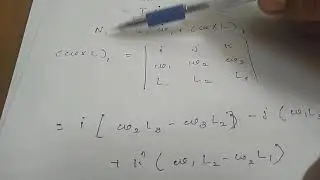 N = ω₁ + (ω×L)₁
(ω×L)₁ = | i j k
ω₁ ω₂ ω₃
L L₂ L₃ |
= i [ω₂L₃ − ω₃L₂] − j (ω₁L
+ k̂ (ω₁L₂ − ω₂L₁)